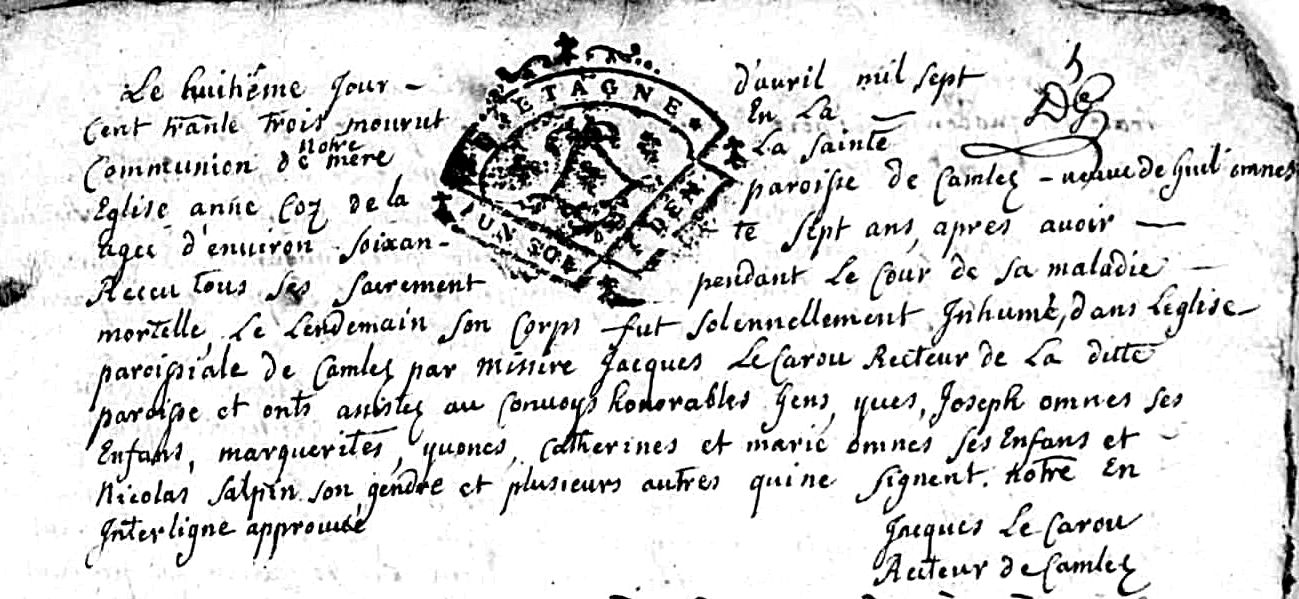 Le huitiême Jour - d'auril mil sept
Cent trante trois mourut En La -
Communion de notre mere La Sainte
Eglise anne Coz de la paroisse de Camlez - veuve de Guil omnes
agee d'environ soixan- te sept ans, apres auoir -
Receu tous ses sacrement pendant Le Cour de sa maladie -
mortelle, Le Lendemain son Corps fut solennellement Inhumé, dans Leglise
paroissiale de Camlez par missire Jacques Le Carou Recteur de La ditte
paroisse et onts assistez au Convoys honorables Gens, yues, Joseph omnes ses
Enfans, marguerites, yuones, Catherines et marie omnes ses Enfans et
Nicolas Salpin son gendre et plusieurs autres qui ne signent. notre En
Interligne approuué
Jacques Le Carou
Recteur de Camlez
BRETAGNE
UN SOL
DEN.